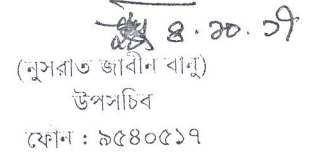 ৪.১০.১৭
(নুসরাত জাবীন বানু)
উপসচিব
ফোন : ৯৫৪০৫১৭